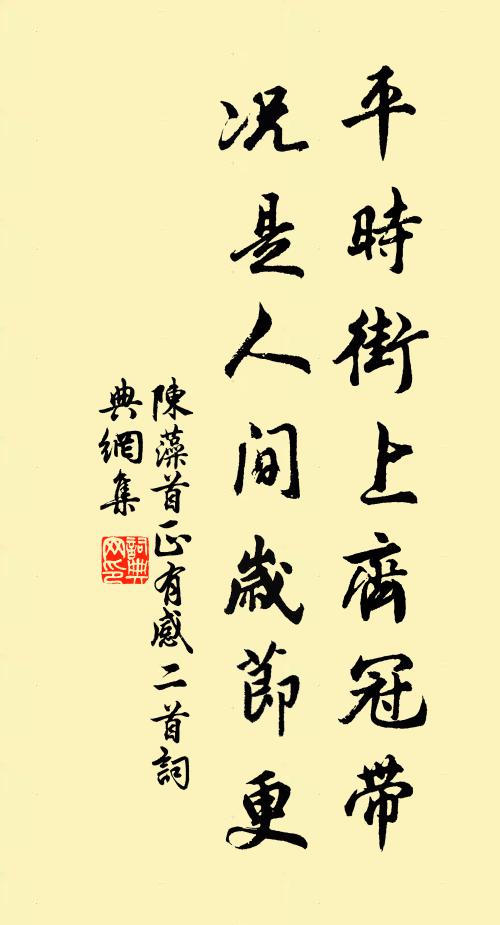 平時街上齊冠帶
况是人間歲節更
陳藻首正有感二首詞
典網集
詞典网印